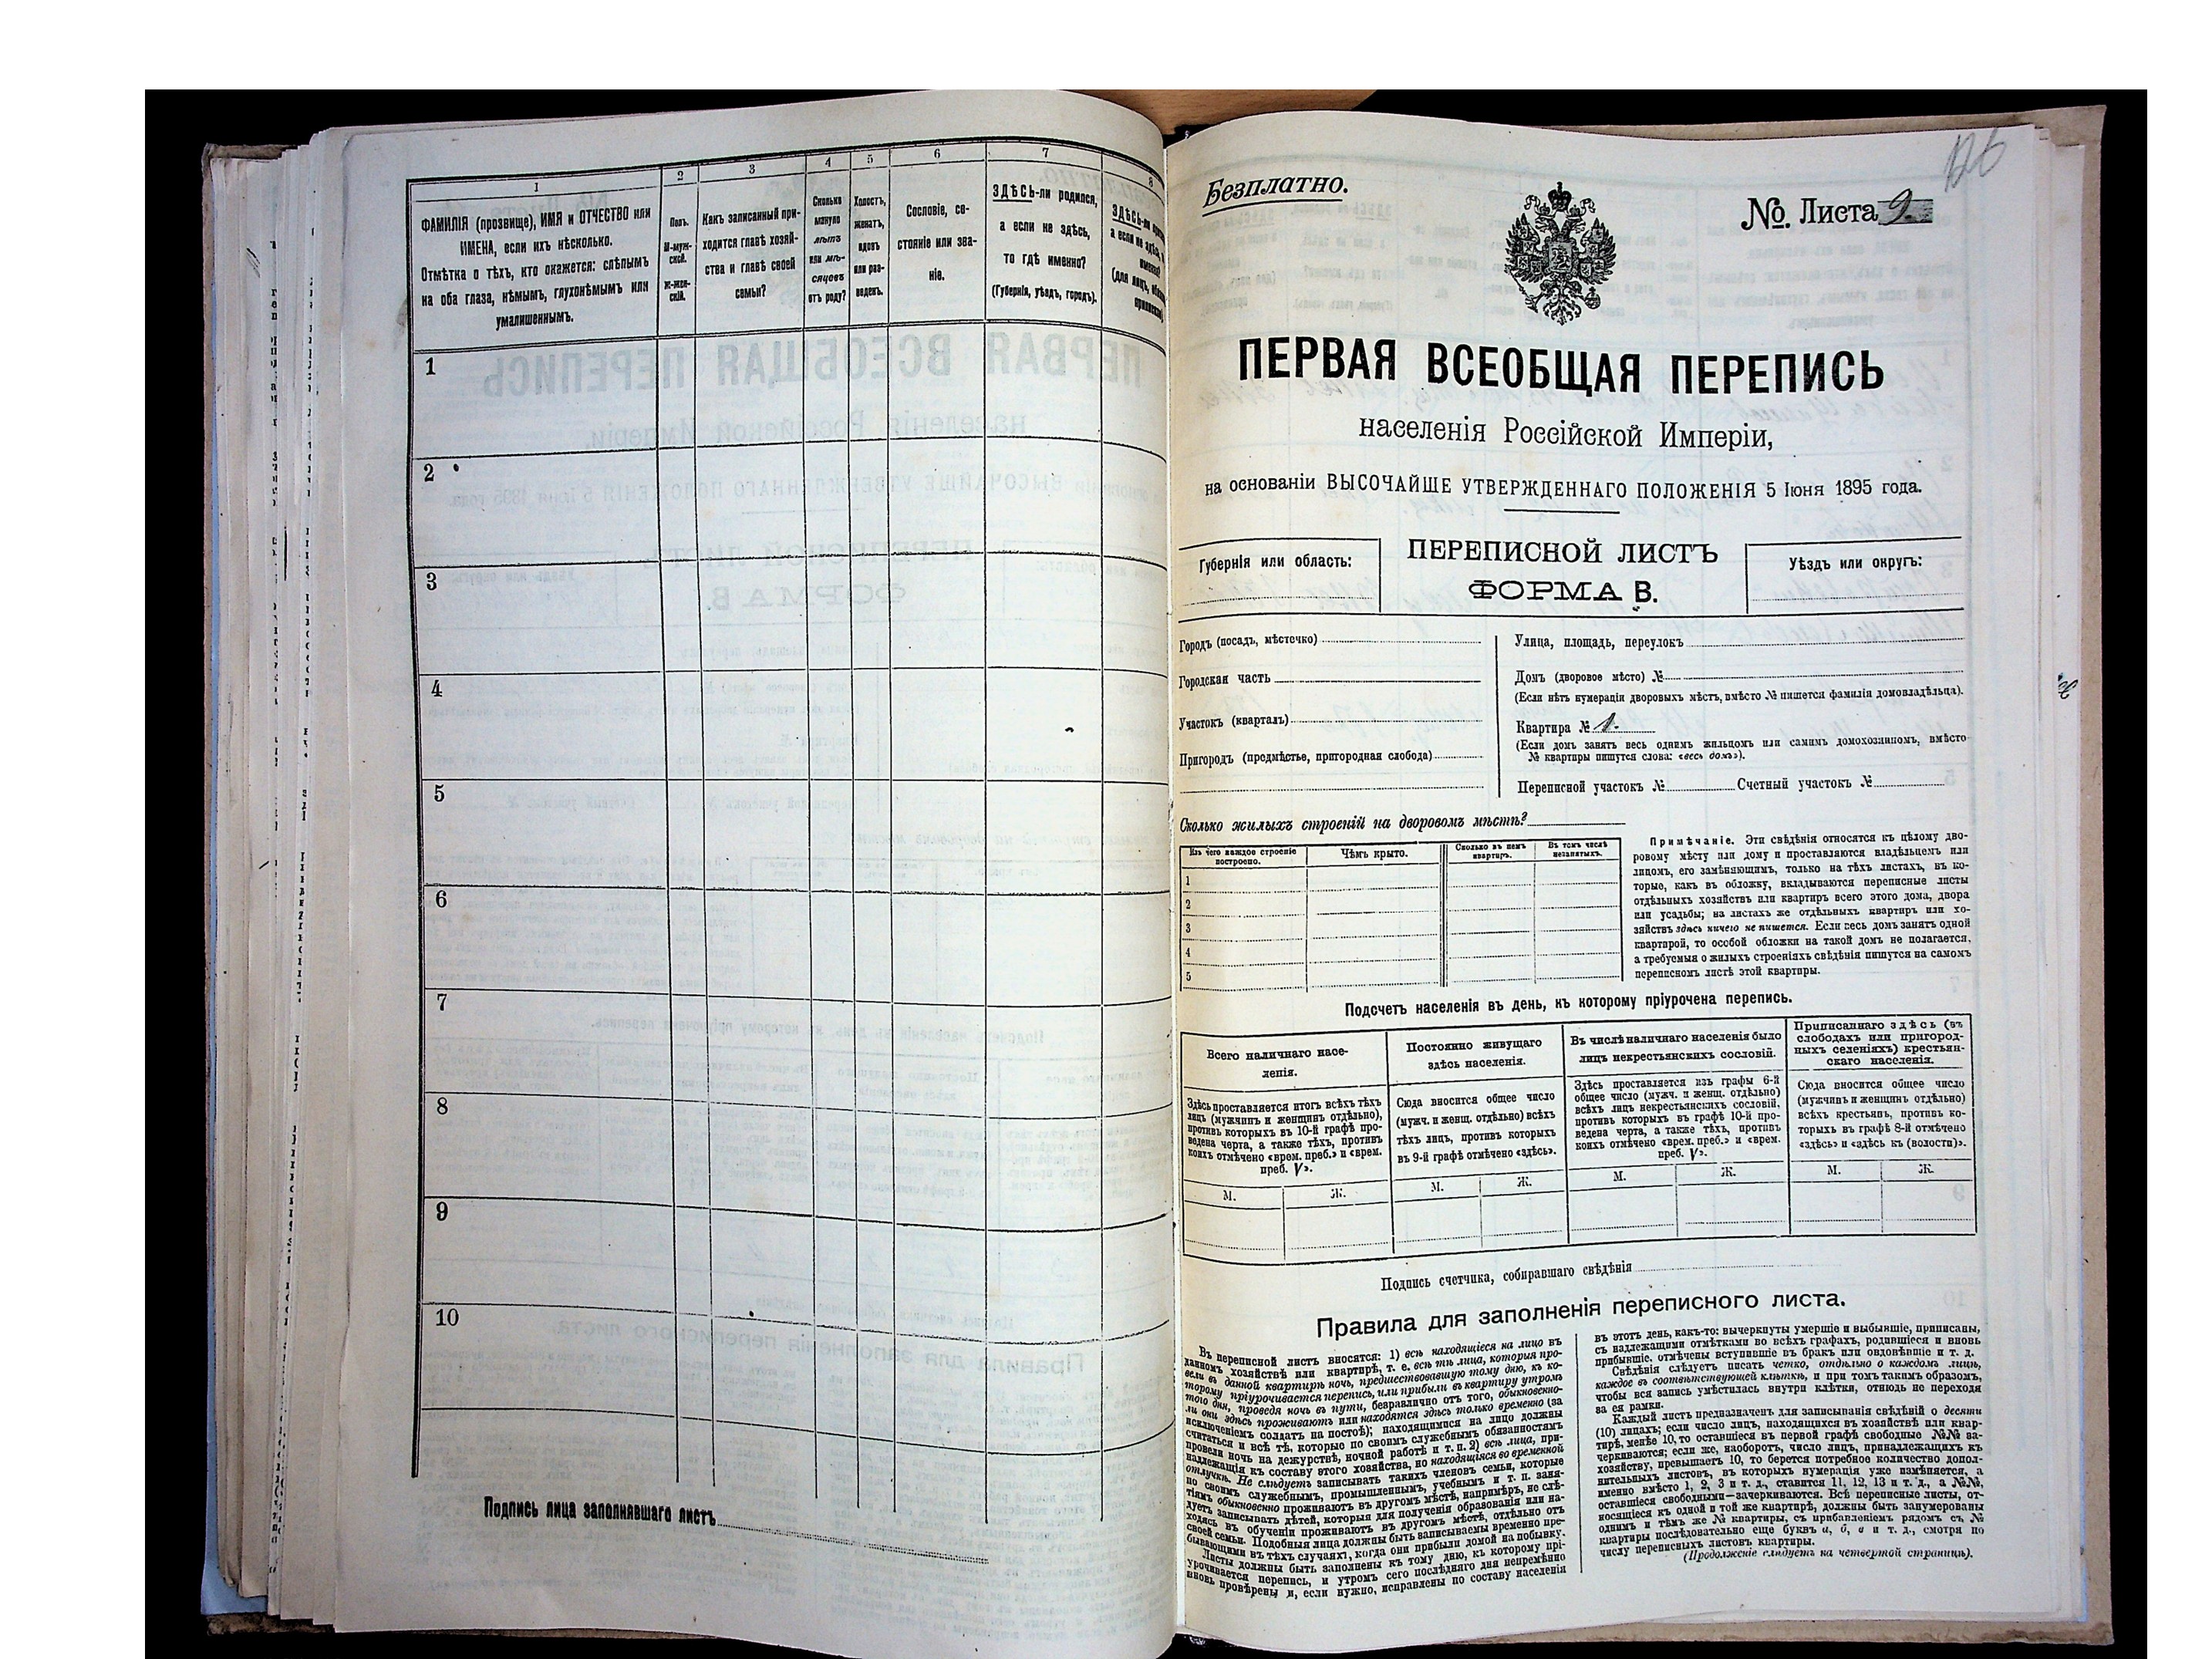 1
2
3
4
5
6
7
8
ФАМИЛІЯ (прозвище), ИМЯ и ОТЧЕСТВО или
ИМЕНА, если ихъ нѣсколько.
Отмѣтка о тѣхъ, кто окажется: слѣпымъ
на оба глаза, нѣмымъ, глухонѣмымъ или
умалишеннымъ.
Полъ.
М-муж-
ской.
Ж-жен-
скій.
Какъ записанный при-
ходится главѣ хозяй-
ства и главѣ своей
семьи?
Сколько
минуло
лѣтъ
или мѣ-
сяцевъ
отъ роду?
Холостъ,
женатъ,
вдовъ
или раз-
веденъ.
Сословіе, со-
стояніе или зва-
ніе.
ЗДѢСЬ-ли родился,
а если не здѣсь,
то гдѣ именно?
(Губернія, уѣздъ, городъ).
ЗДѢСЬ-ли
а если не здѣсь,
1
2
3
4
5
6
7
8
9
10
Подпись лица заполнявшаго листъ
126
Безплатно.
№ Листа 9
ПЕРВАЯ ВСЕОБЩАЯ ПЕРЕПИСЬ
населенія Россійской Имперіи,
на основаніи ВЫСОЧАЙШЕ УТВЕРЖДЕННАГО ПОЛОЖЕНІЯ 5 Іюня 1895 года.
Губернія или область:
ПЕРЕПИСНОЙ ЛИСТЪ
ФОРМА В.
Уѣздъ или округъ:
Городъ (посадъ, мѣстечко)
Городская часть
Участокъ (кварталъ)
Пригородъ (предмѣстье, пригородная слобода)
Улица, площадь, переулокъ
Домъ (дворовое мѣсто) №
(Если нѣтъ нумераціи дворовыхъ мѣстъ, вмѣсто № пишется фамилія домовладѣльца).
Квартира № 1.
(Если домъ занятъ весь однимъ жильцомъ или самимъ домохозяиномъ, вмѣсто
№ квартиры пишутся слова: «весь домъ»).
Переписной участокъ № Счетный участокъ №
Сколько жилыхъ строеній на дворовомъ мѣстѣ?
Изъ чего каждое строеніе
построено.
Чѣмъ крыто.
Сколько въ немъ
квартиръ.
Въ томъ числѣ
незанятыхъ.
1
2
3
4
5
Примѣчаніе. Эти свѣдѣнія относятся къ цѣлому дво-
ровому мѣсту или дому и проставляются владѣльцемъ или
лицомъ, его замѣняющимъ, только на тѣхъ листахъ, въ ко-
торые, какъ въ обложку, вкладываются переписные листы
отдѣльныхъ хозяйствъ или квартиръ всего этого дома, двора
или усадьбы; на листахъ же отдѣльныхъ квартиръ или хо-
зяйствъ здѣсь ничего не пишется. Если весь домъ занятъ одной
квартирой, то особой обложки на такой домъ не полагается,
а требуемыя о жилыхъ строеніяхъ свѣдѣнія пишутся на самомъ
переписномъ листѣ этой квартиры.
Подсчетъ населенія въ день, къ которому пріурочена перепись.
Всего наличнаго насе-
ленія.
Постоянно живущаго
здѣсь населенія.
Въ числѣ наличнаго населенія было
лицъ некрестьянскихъ сословій.
Приписаннаго здѣсь (въ
слободахъ или пригород-
ныхъ селеніяхъ) крестьян-
скаго населенія.
Здѣсь проставляется итогъ всѣхъ тѣхъ
лицъ (мужчинъ и женщинъ отдѣльно),
противъ которыхъ въ 10-й графѣ про-
ведена черта, а также тѣхъ, противъ
коихъ отмѣчено «врем. преб.» и «врем.
преб. V».
Сюда вносится общее число
(мужч. и женщ. отдѣльно) всѣхъ
тѣхъ лицъ, противъ которыхъ
въ 9-й графѣ отмѣчено «здѣсь».
Здѣсь проставляется изъ графы 6-й
общее число (мужч. и женщ. отдѣльно)
всѣхъ лицъ некрестьянскихъ сословій,
противъ которыхъ въ графѣ 10-й про-
ведена черта, а также тѣхъ, противъ
коихъ отмѣчено «врем. преб.» и «врем.
преб. V».
Сюда вносится общее число
(мужчинъ и женщинъ отдѣльно)
всѣхъ крестьянъ, противъ ко-
торыхъ въ графѣ 8-й отмѣчено
«здѣсь» и «здѣсь къ (волости)».
М. Ж. М. Ж. М. Ж. М. Ж.
Подпись счетчика, собиравшаго свѣдѣнія
Правила для заполненія переписного листа.
Въ переписной листъ вносятся: 1) всѣ находящіеся на лицо въ
данномъ хозяйствѣ или квартирѣ, т. е. всѣ тѣ лица, которыя про-
вели въ данной квартирѣ ночь, предшествовавшую тому дню, къ ко-
торому пріурочивается перепись, или прибыли въ квартиру утромъ
того дня, проведя ночь въ пути, безразлично отъ того, обыкновенно-
ли они здѣсь проживаютъ или находятся здѣсь только временно (за
исключеніемъ солдатъ на постоѣ); находящимися на лицо должны
считаться и всѣ тѣ, которые по своимъ служебнымъ обязанностямъ
провели ночь на дежурствѣ, ночной работѣ и т. п. 2) всѣ лица, при-
надлежащія къ составу этого хозяйства, но находящіяся во временной
отлучкѣ. Не слѣдуетъ записывать такихъ членовъ семьи, которые
по своимъ служебнымъ, промышленнымъ, учебнымъ и т. п. заня-
тіямъ обыкновенно проживаютъ въ другомъ мѣстѣ, напримѣръ, не слѣ-
дуетъ записывать дѣтей, которыя для полученія образованія или на-
ходясь въ обученіи проживаютъ въ другомъ мѣстѣ, отдѣльно отъ
своей семьи. Подобныя лица должны быть записываемы временно пре-
бывающими въ тѣхъ случаяхъ, когда они прибыли домой на побывку.
Листы должны быть заполнены къ тому дню, къ которому прі-
урочивается перепись, и утромъ сего послѣдняго дня непремѣнно
вновь провѣрены и, если нужно, исправлены по составу населенія
въ этотъ день, какъ-то: вычеркнуты умершіе и выбывшіе, приписаны,
съ надлежащими отмѣтками во всѣхъ графахъ, родившіеся и вновь
прибывшіе, отмѣчены вступившіе въ бракъ или овдовѣвшіе и т. д.
Свѣдѣнія слѣдуетъ писать четко, отдѣльно о каждомъ лицѣ,
каждое въ соотвѣтствующей клѣткѣ, и при томъ такимъ образомъ,
чтобы вся запись умѣстилась внутри клѣтки, отнюдь не переходя
за ея рамки.
Каждый листъ предназначенъ для записыванія свѣдѣній о десяти
(10) лицахъ; если число лицъ, находящихся въ хозяйствѣ или квар-
тирѣ, менѣе 10, то оставшіеся въ первой графѣ свободные №№ за-
черкиваются; если же, наоборотъ, число лицъ, принадлежащихъ къ
хозяйству, превышаетъ 10, то берется потребное количество допол-
нительныхъ листовъ, въ которыхъ нумерація уже измѣняется, а
именно вмѣсто 1, 2, 3 и т. д., ставится 11, 12, 13 и т. д., а №№,
оставшіеся свободными—зачеркиваются. Всѣ переписные листы, от-
носящіеся къ одной и той же квартирѣ, должны быть занумерованы
однимъ и тѣмъ же № квартиры, съ прибавленіемъ рядомъ съ №
квартиры послѣдовательно еще буквъ а, б, в и т. д., смотря по
числу переписныхъ листовъ квартиры.
(Продолженіе слѣдуетъ на четвертой страницѣ).